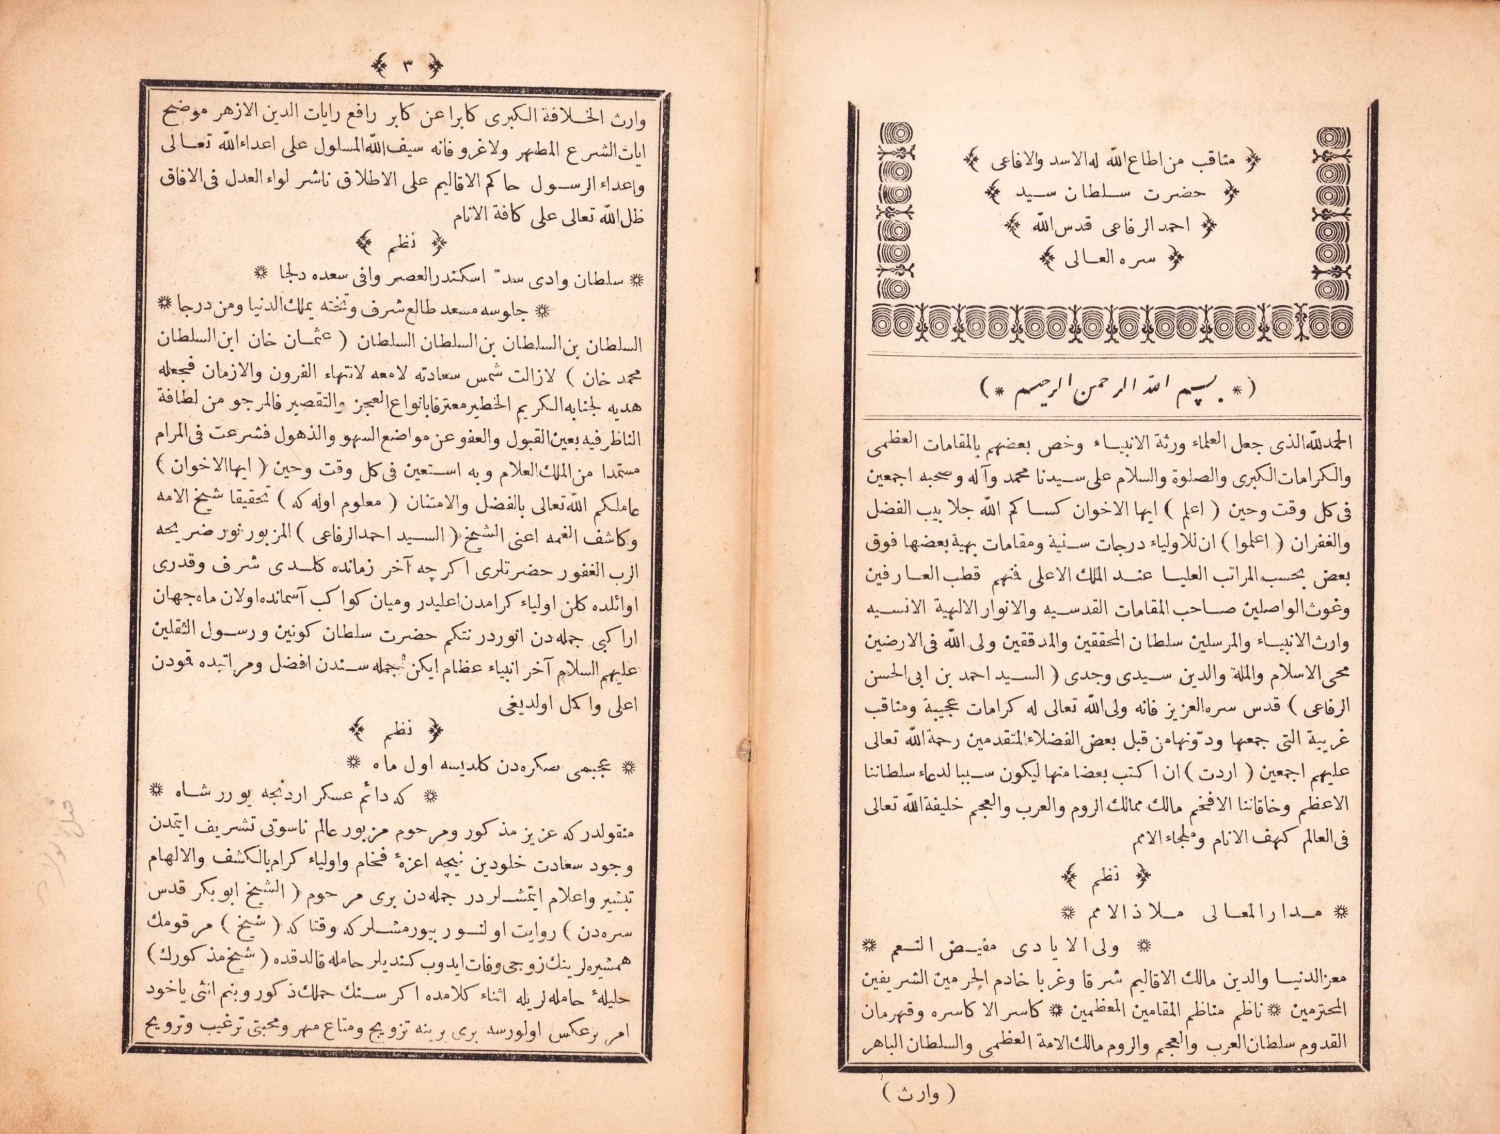 مناقب من اطاع الله له الاسد والافاعى
حضرت سلطان سيد
احمد الرفاعى قدس الله
سره العالى
(* بسم الله الرحمن الرحيم *)
الحمد لله الذى جعل العلماء ورثة الانبياء وخص بعضهم بالمقامات العظمى
والكرامات الكبرى والصلوة والسلام على سيدنا محمد وآله وصحبه اجمعين
فى كل وقت وحين ( اعلم ) ايها الاخوان كساكم الله جلابيب الفضل
والغفران ( اعلموا ) ان للاولياء درجات سنية ومقامات بهية بعضها فوق
بعض بحسب المراتب العليا عند الملك الاعلى فنهم قطب العارفين
وغوث الواصلين صاحب المقامات القدسيه والانوار الالهية الانسيه
وارث الانبياء والمرسلين سلطان المحققين والمدققين ولى الله فى الارضين
محى الاسلام والملة والدين سيدى وجدى ( السيد احمد بن ابى الحسن
الرفاعى ) قدس سره العزيز فانه ولى الله تعالى له كرامات عجيبة ومناقب
غريبة التى جمعها ودوّنها من قبل بعض الفضلاء المتقدمين رحمة الله تعالى
عليهم اجمعين ( اردت ) ان اكتب بعضا منها ليكون سببا لدعاء سلطاننا
الاعظم وخاقاننا الافخم مالك ممالك الروم والعرب والعجم خليفة الله تعالى
فى العالم كهف الانام وملجاء الامم
نظم
* مدار المعالى ملاذ الامم *
* ولى الايادى مفيض النعم *
معز الدنيا والدين مالك الاقاليم شرقا وغربا خادم الحرمين الشريفين
المحترمين * ناظم مناظم المقامين المعظمين * كاسر الاكاسره وقهرمان
القدوم سلطان العرب والعجم والروم مالك الامة العظمى والسلطان الباهر
( وارث )
٣
وارث الخلافة الكبرى كابرا عن كابر رافع رايات الدين الازهر موضح
ايات الشرع المطهر ولاغرو فانه سيف الله المسلول على اعداء الله تعالى
واعداء الرسول حاكم الاقاليم على الاطلاق ناشر لواء العدل فى الافاق
ظل الله تعالى على كافة الانام
نظم
* سلطان وادى سدّ اسكندر العصر وافى سعده دلجا *
* جلوسه مسعد طالع شرف وتخته يملك الدنيا ومن درجا *
السلطان بن السلطان بن السلطان السلطان ( عثمان خان ابن السلطان
محمد خان ) لازالت شمس سعادته لامعه لانتهاء القرون والازمان فجعله
هديه لجنابه الكريم الخطير معترفا بانواع العجز والتقصير فالمرجو من لطافة
الناظر فيه بعين القبول والعفو عن مواضع السهو والذهول فشرعت فى المرام
مستمدا من الملك العلام وبه استعين فى كل وقت وحين ( ايها الاخوان )
عاملكم الله تعالى بالفضل والامتنان ( معلوم اوله كه ) تحقيقا شيخ الامه
وكاشف الغمه اعنى الشيخ ( السيد احمد الرفاعى ) المزبور نور ضريحه
الرب الغفور حضرتلرى اكرچه آخر زمانده كلدى شرف وقدرى
اوائلده كلن اولياء كرامدن اعليدر وميان كواكب آسمانده اولان ماه جهان
ارا كبى جمله دن انوردر نتكم حضرت سلطان كونين ورسول الثقلين
عليهم السلام آخر انبياء عظام ايكن جمله سندن افضل ومراتبده قودن
اعلى واكمل اولديغى
نظم
* عجبمى صكره دن كلديسه اول ماه *
* كه دائم عسكر اردنجه يورر شاه *
منقولدركه عزيز مذكور ومرحوم مزبور عالم ناسوتى تشريف ايتمدن
وجود سعادت خلودين نيچه اعزهٔ فخام واولياء كرام بالكشف والالهام
تبشير واعلام ايتمشلردر جمله دن برى مرحوم ( الشيخ ابو بكر قدس
سره دن ) روايت اولنور بيورمشلركه وقتاكه ( شيخ ) مرقومك
همشيره لرينك زوجى وفات ايدوب كنديلر حامله قالدقده ( شيخ مذكورك )
حليلهٔ حامله لريله اثناء كلامده اكر سنك حملك ذكور وبنم انثى ياخود
امر برعكس اولورسه برى برينه تزويج ومتاع مهر ومحبتى ترغيب وترويج